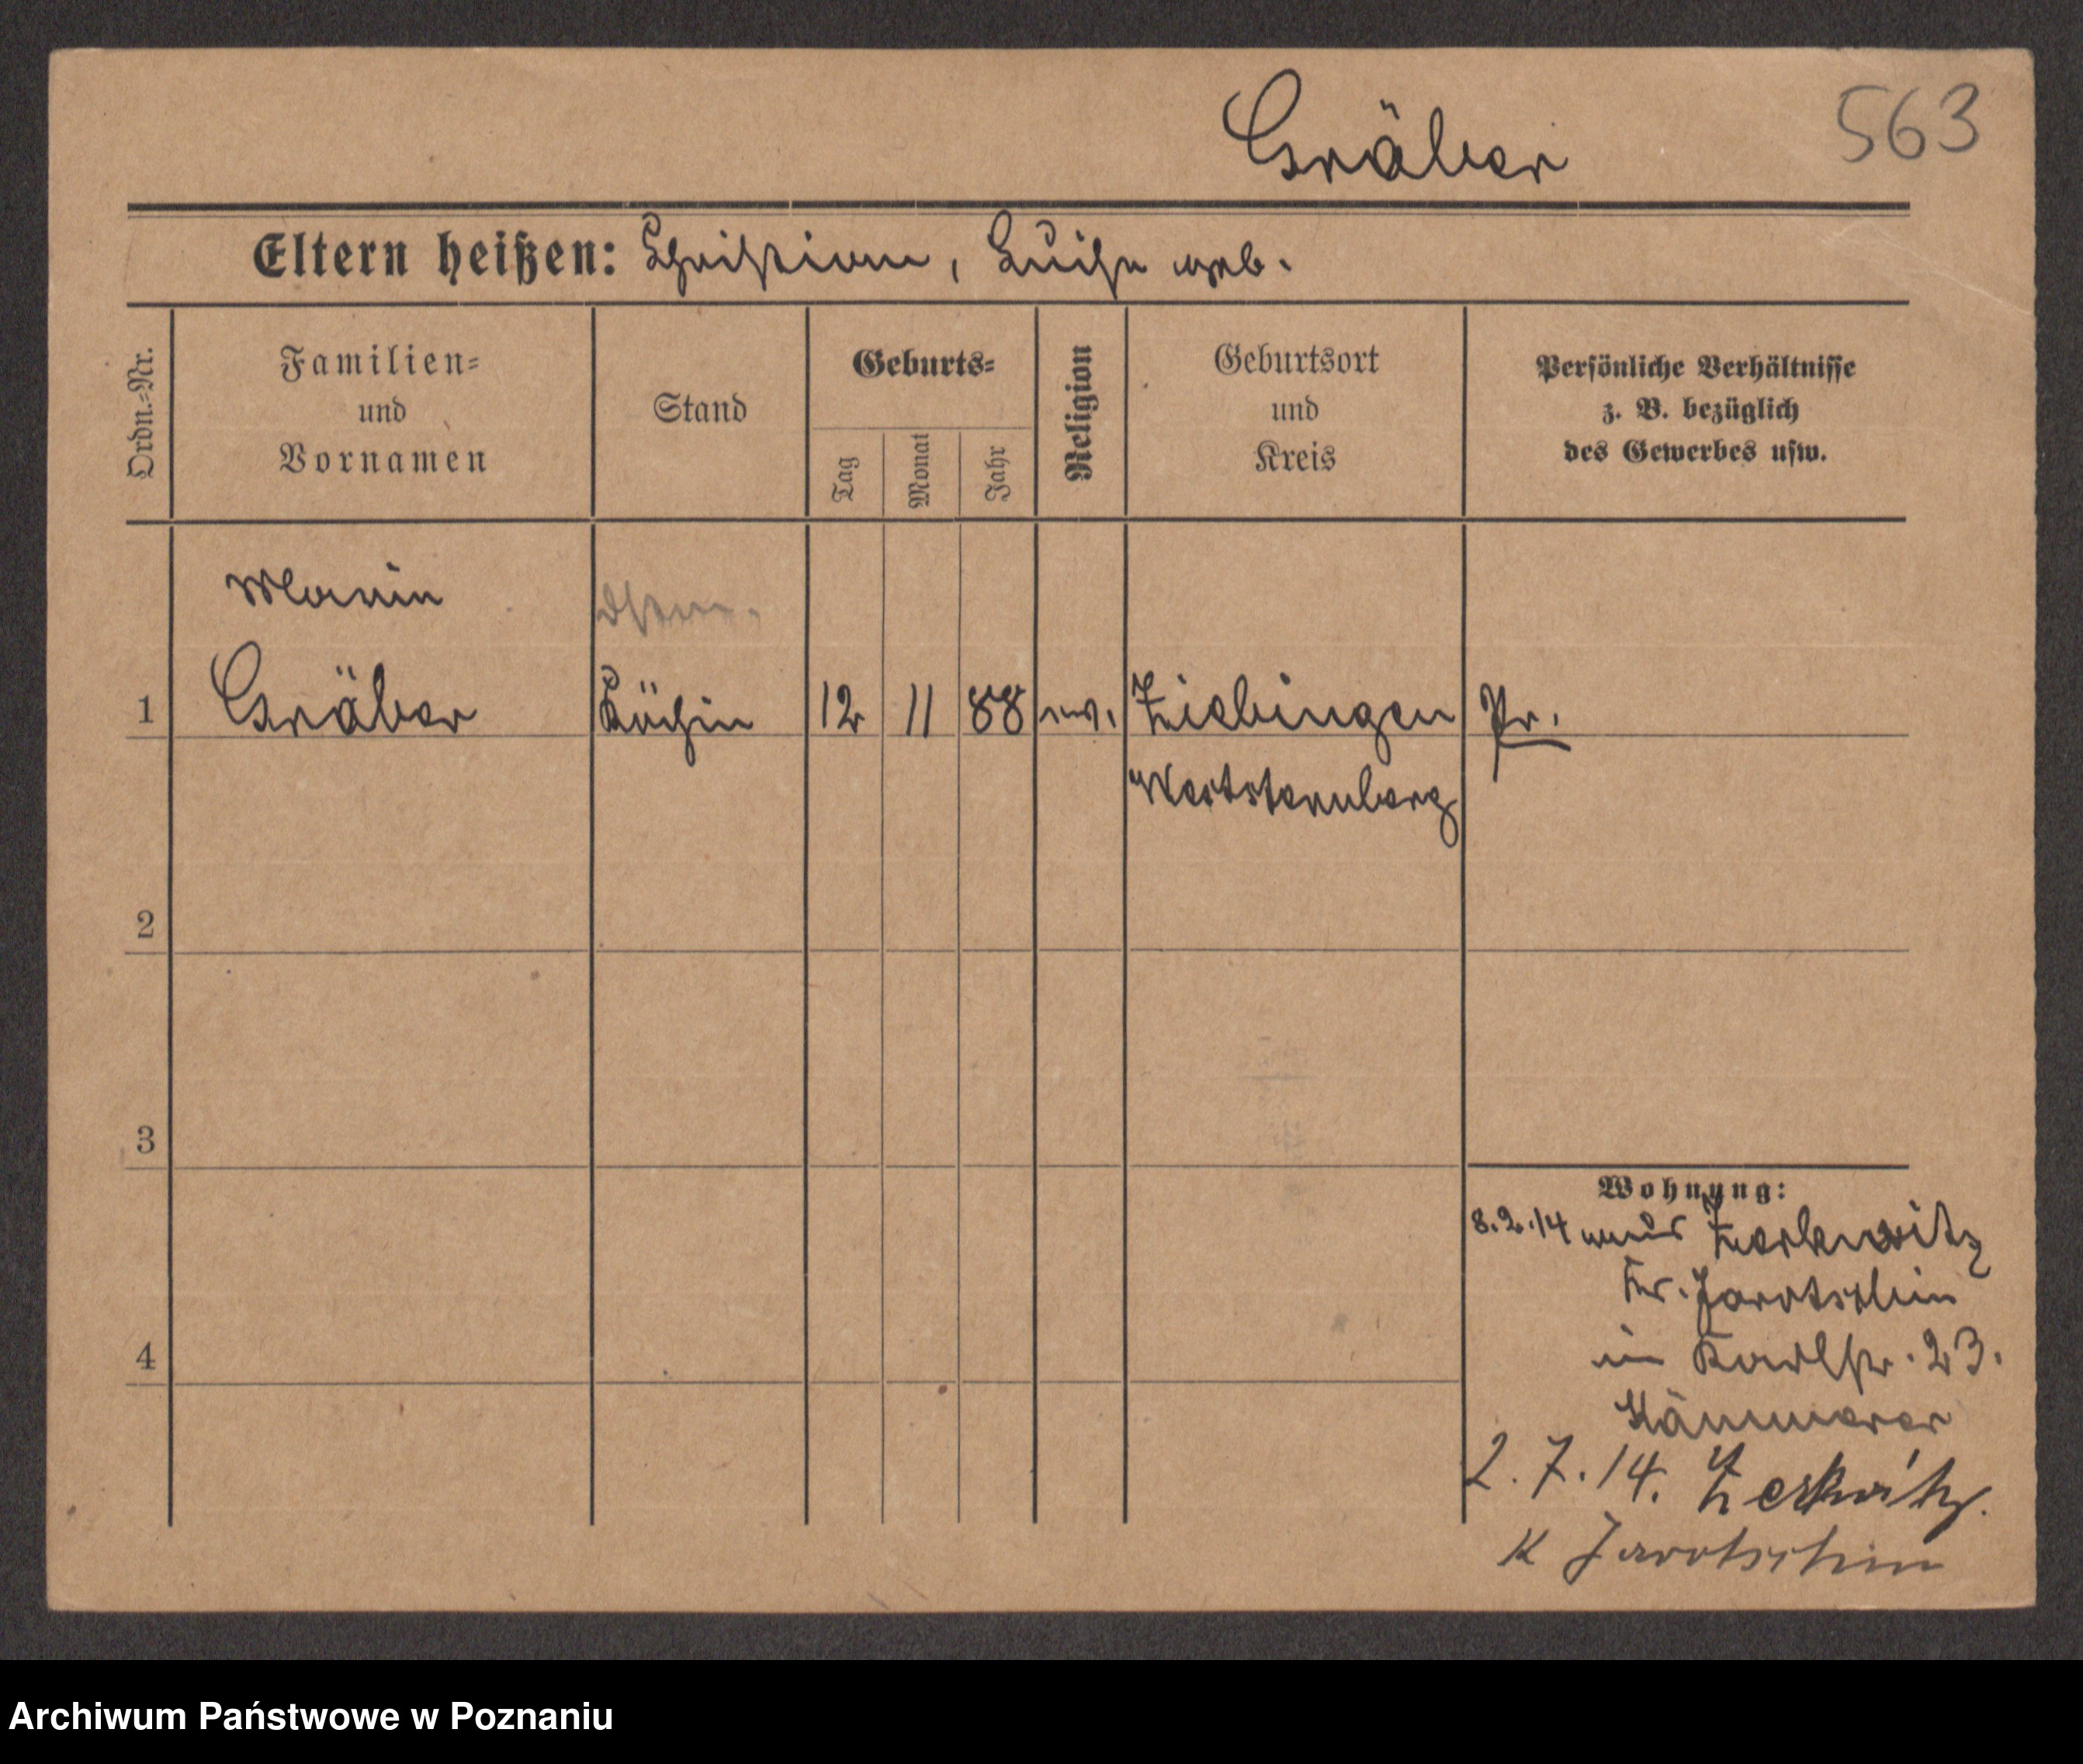 Gräber
563
Eltern heißen: Christian, Luise geb.
Ordn.-Nr.
Familien-
und
Vornamen
Stand
Geburts-
Tag
Monat
Jahr
Religion
Geburtsort
und
Kreis
Persönliche Verhältnisse
z. B. bezüglich
des Gewerbes usw.
Marie
1 Gräber Köchin 12 11 88 ev. Ziebingen Pr.
Weststernberg
2
3
Wohnung:
8.2.14 aus Zerkwitz
Kr. Jarotschin
in Karlstr. 23.
4
Kämmerer
2.7.14. Zerkwitz.
K Jarotschin
Archiwum Państwowe w Poznaniu